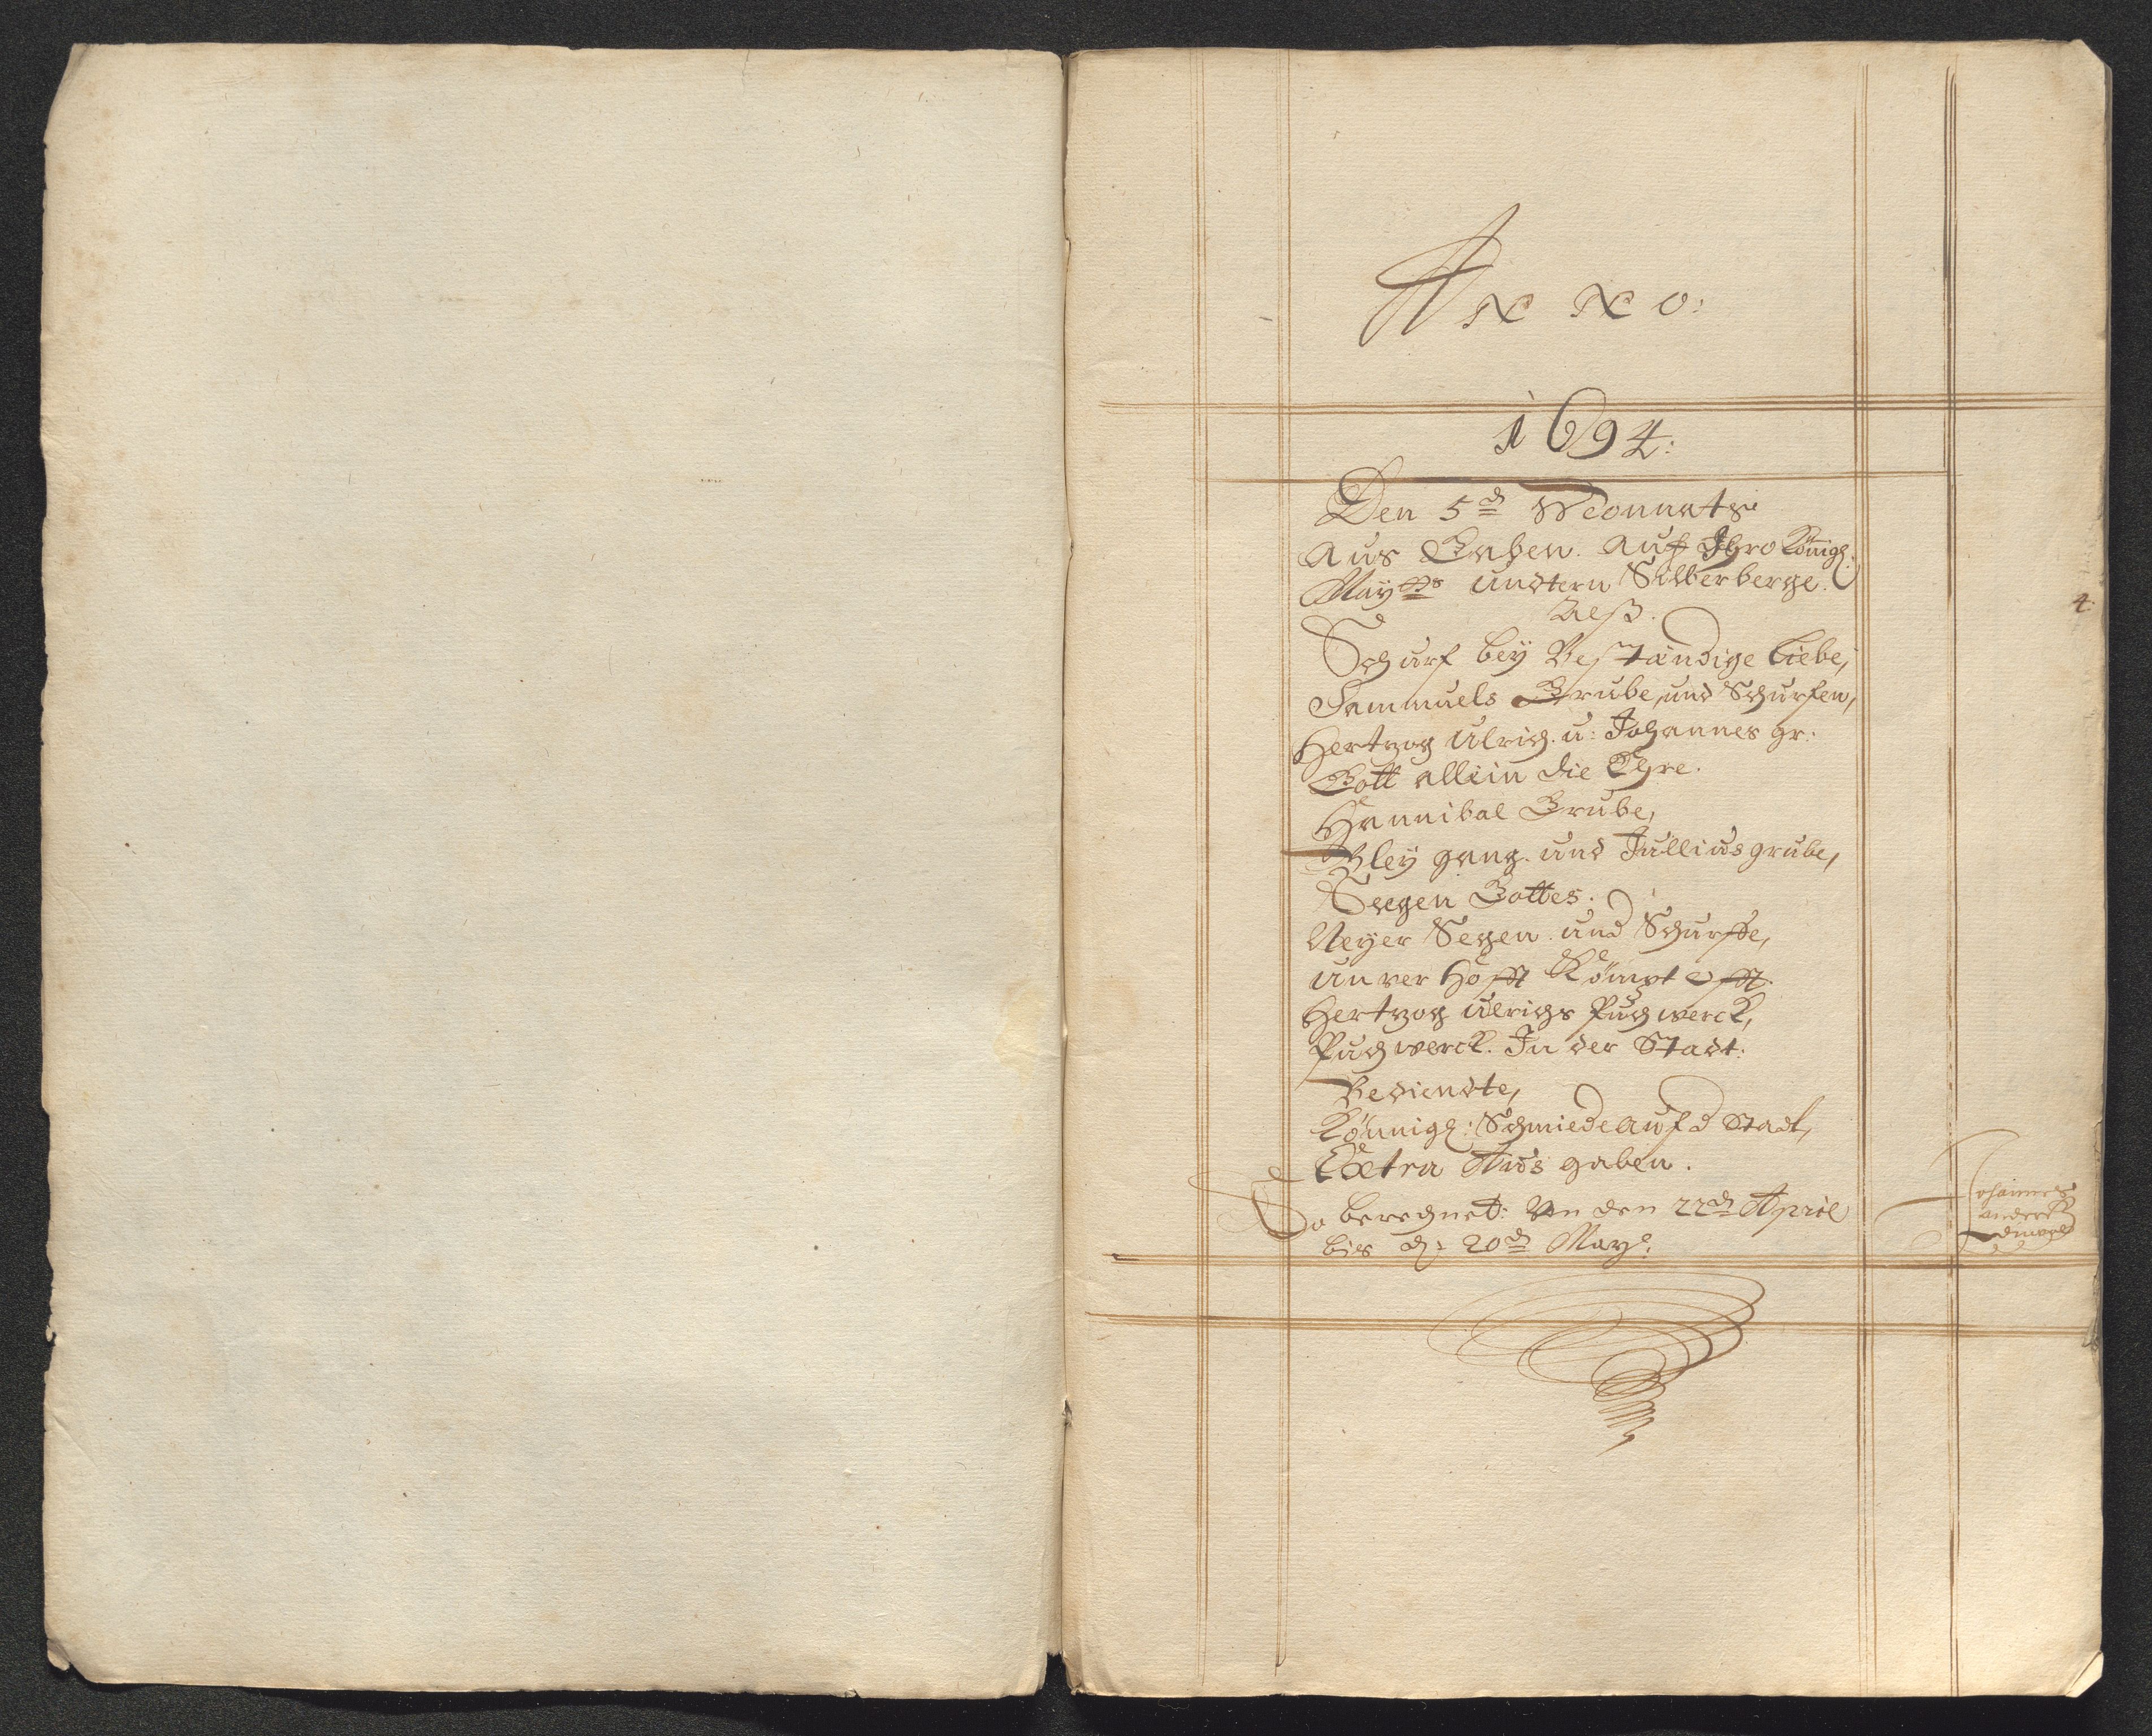 Anno:
1694:
Den 5d Monnats
Aus Gaben. Auf Ihro Königl:
May tts Undtern Silberberge.
Alß.
4
Schurf bey Beständige Liebe,
Sammuels Grube, und Schurfen,
Hertzog Ulrich. u: Johannes gr:
Gott allein die Ehre.
Hannibal Grube,
Bley gang. und Jullius grube,
Seegen Gottes.
Neyer Seegen. und Schurffe,
Unver Hofft Kömpt Offt.
Hertzog Ulrichs Puchwerck,
Puchwerck. In der Stadt:
Bediendte,
Könnigl: Schmiede auf d Stadt,
Extra Aus gaben.
So berechnet: Von den 22d April
bis d: 20d May:
Johannes